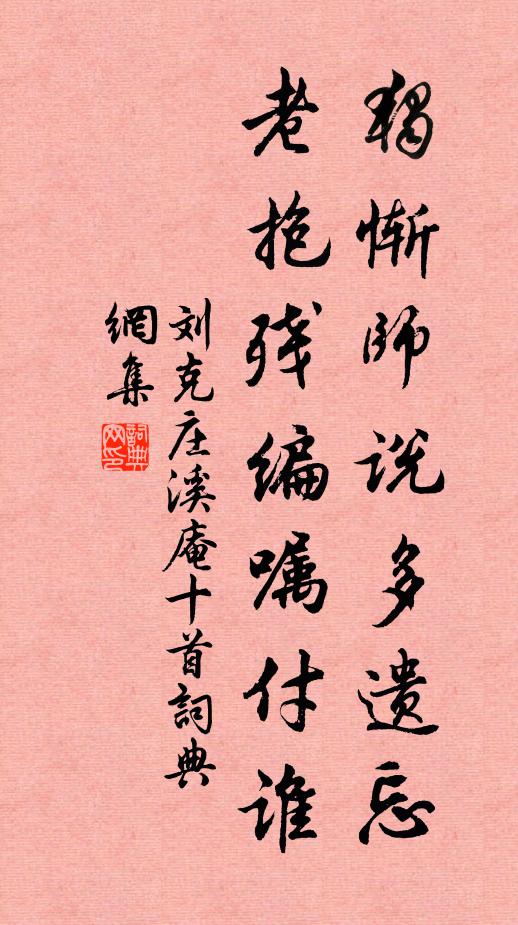 独惭师说多遗忘
老抱残编嘱付谁
刘克庄溪庵十首詞典
網集
詞典
网印